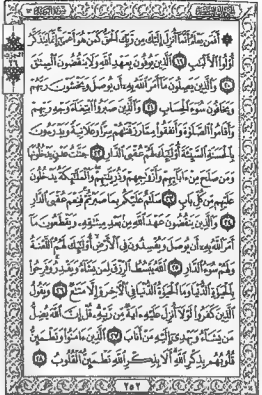 ۞ أَفَمَن يَعْلَمُ أَنَّمَا أُنزِلَ إِلَيْكَ مِن رَّبِّكَ الْحَقُّ كَمَنْ هُوَ أَعْمَىٰ إِنَّمَا يَتَذَكَّرُ
أُولُوا الْأَلْبَابِ ١٩ الَّذِينَ يُوفُونَ بِعَهْدِ اللَّهِ وَلَا يَنقُضُونَ الْمِيثَاقَ
٢٠ وَالَّذِينَ يَصِلُونَ مَا أَمَرَ اللَّهُ بِهِ أَن يُوصَلَ وَيَخْشَوْنَ رَبَّهُمْ
وَيَخَافُونَ سُوءَ الْحِسَابِ ٢١ وَالَّذِينَ صَبَرُوا ابْتِغَاءَ وَجْهِ رَبِّهِمْ
وَأَقَامُوا الصَّلَاةَ وَأَنفَقُوا مِمَّا رَزَقْنَاهُمْ سِرًّا وَعَلَانِيَةً وَيَدْرَءُونَ
بِالْحَسَنَةِ السَّيِّئَةَ أُولَٰئِكَ لَهُمْ عُقْبَى الدَّارِ ٢٢ جَنَّاتُ عَدْنٍ يَدْخُلُونَهَا
وَمَن صَلَحَ مِنْ آبَائِهِمْ وَأَزْوَاجِهِمْ وَذُرِّيَّاتِهِمْ وَالْمَلَائِكَةُ يَدْخُلُونَ
عَلَيْهِم مِّن كُلِّ بَابٍ ٢٣ سَلَامٌ عَلَيْكُم بِمَا صَبَرْتُمْ فَنِعْمَ عُقْبَى الدَّارِ
٢٤ وَالَّذِينَ يَنقُضُونَ عَهْدَ اللَّهِ مِن بَعْدِ مِيثَاقِهِ وَيَقْطَعُونَ مَا
أَمَرَ اللَّهُ بِهِ أَن يُوصَلَ وَيُفْسِدُونَ فِي الْأَرْضِ أُولَٰئِكَ لَهُمُ اللَّعْنَةُ
وَلَهُمْ سُوءُ الدَّارِ ٢٥ اللَّهُ يَبْسُطُ الرِّزْقَ لِمَن يَشَاءُ وَيَقْدِرُ وَفَرِحُوا
بِالْحَيَاةِ الدُّنْيَا وَمَا الْحَيَاةُ الدُّنْيَا فِي الْآخِرَةِ إِلَّا مَتَاعٌ ٢٦ وَيَقُولُ
الَّذِينَ كَفَرُوا لَوْلَا أُنزِلَ عَلَيْهِ آيَةٌ مِّن رَّبِّهِ قُلْ إِنَّ اللَّهَ يُضِلُّ
مَن يَشَاءُ وَيَهْدِي إِلَيْهِ مَنْ أَنَابَ ٢٧ الَّذِينَ آمَنُوا وَتَطْمَئِنُّ
قُلُوبُهُم بِذِكْرِ اللَّهِ أَلَا بِذِكْرِ اللَّهِ تَطْمَئِنُّ الْقُلُوبُ ٢٨
٢٥٢